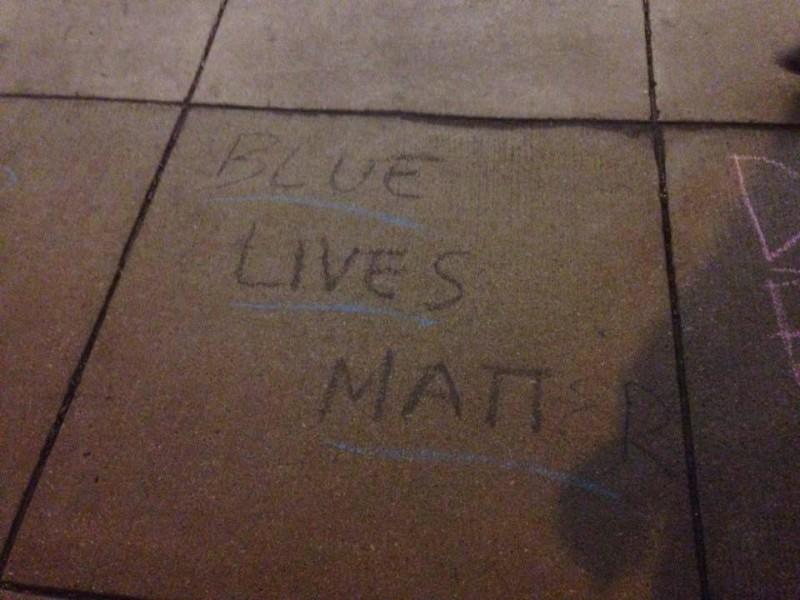 BLUE
LIVES
MATTER